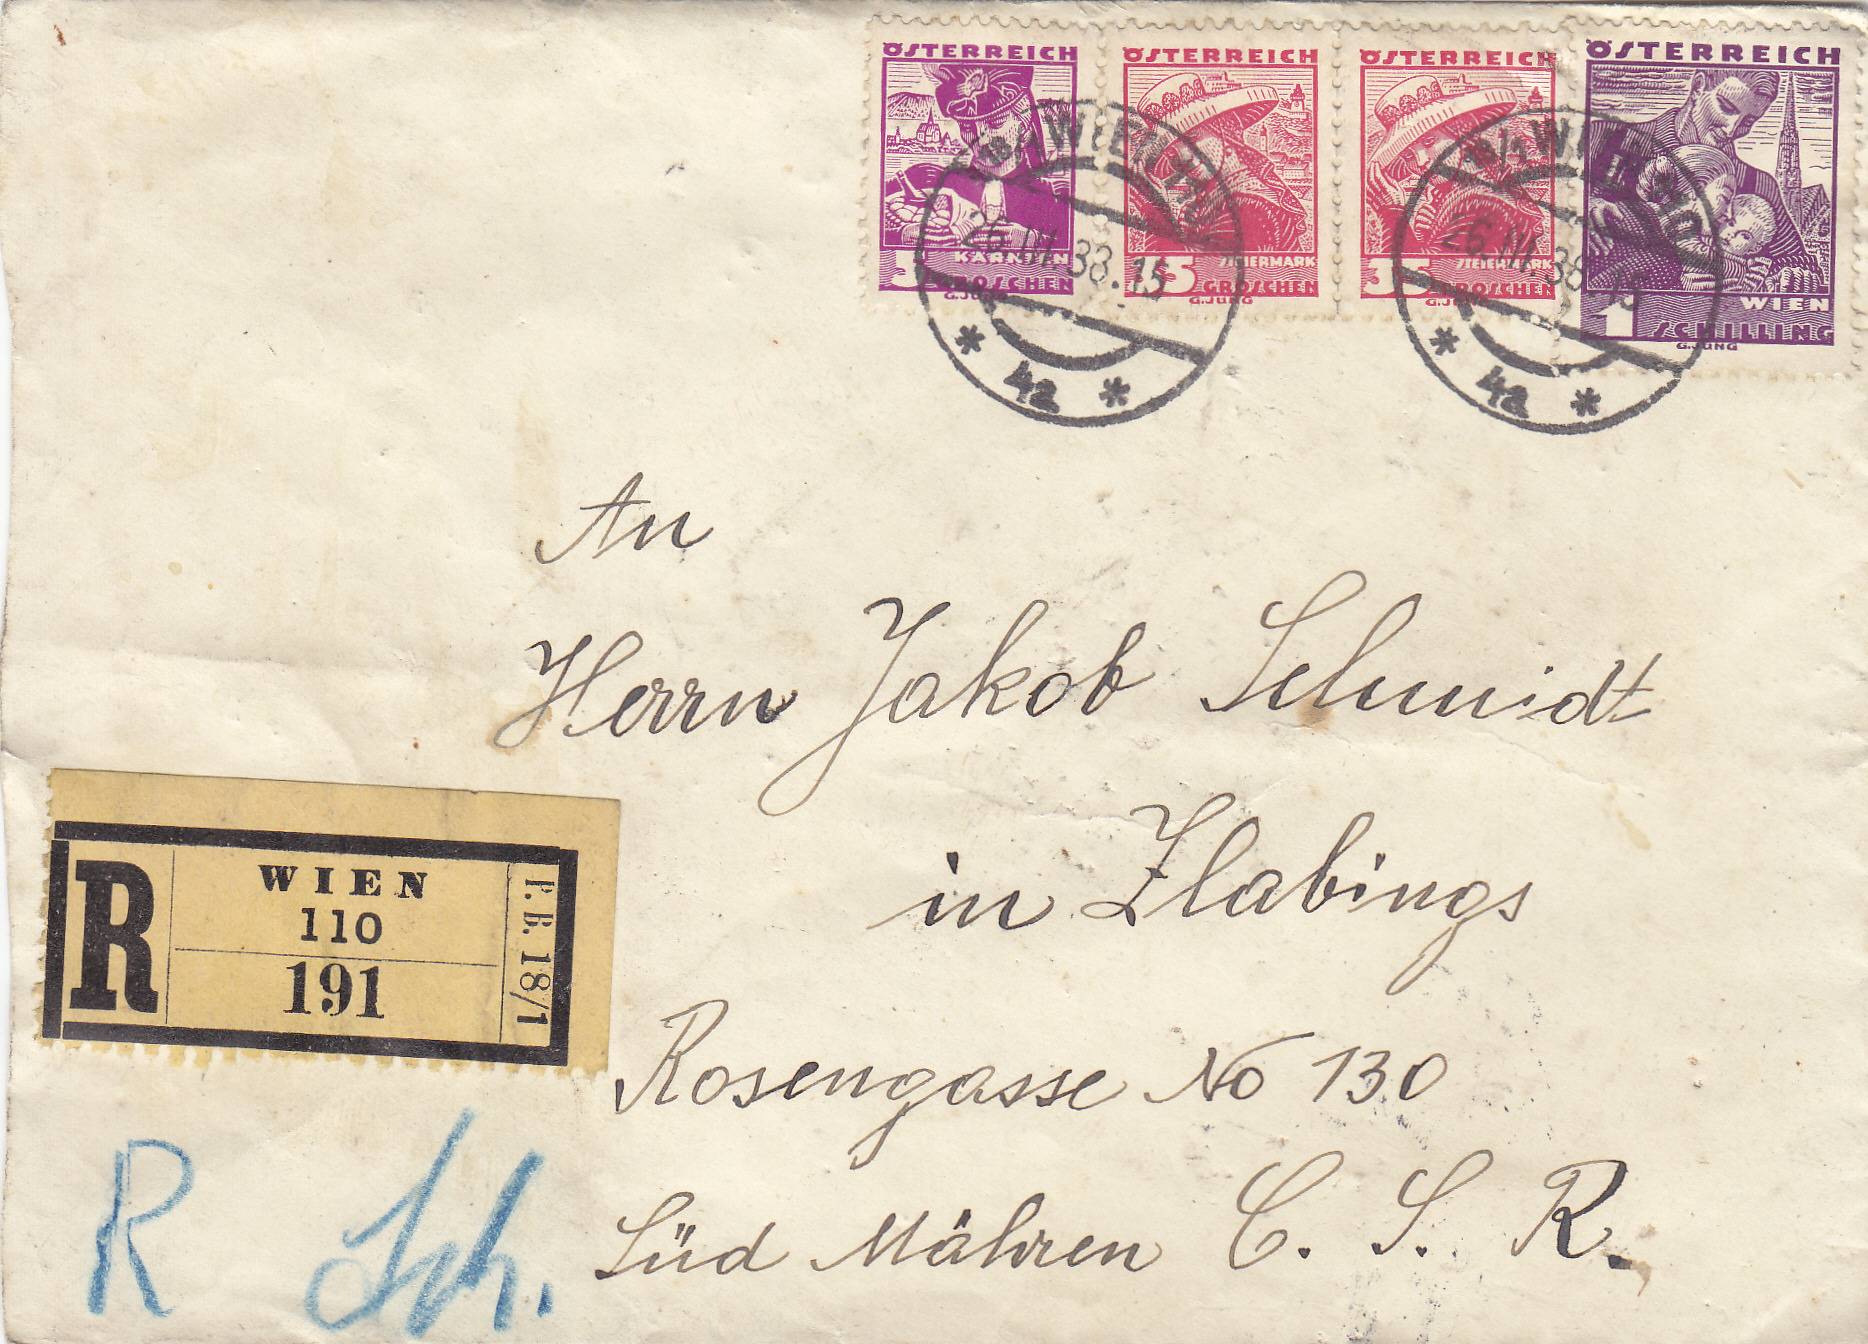 ÖSTERREICH
KÄRNTEN
GROSCHEN
G.JUNG
ÖSTERREICH
STEIERMARK
35 GROSCHEN
G.JUNG
ÖSTERREICH
STEIERMARK
35 GROSCHEN
G.JUNG
ÖSTERREICH
WIEN
1 SCHILLING
G.JUNG
18/1 WIEN 110
26.III.38.15
* 4a *
18/1 WIEN 110
26.III.38.15
* 4a *
An
Herrn Jakob Schmidt
in Zlabings
Rosengasse No 130
Süd Mähren C. S. R.
R
WIEN
110
191
P. B. 18/1
R Sch.